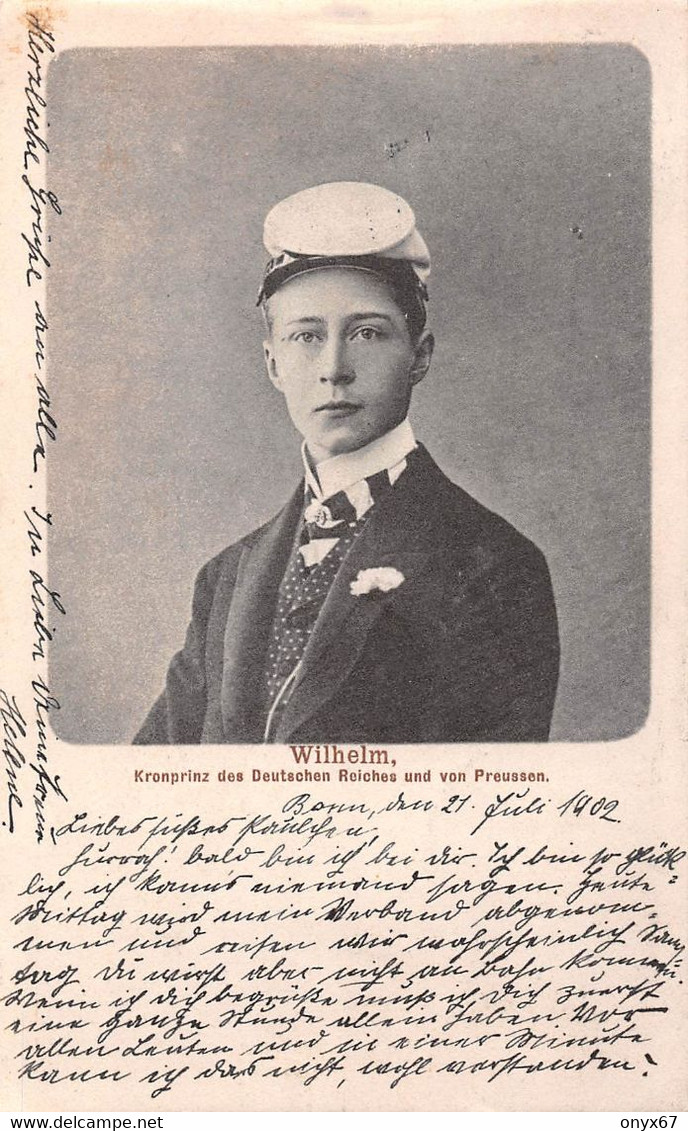 Wilhelm,
Kronprinz des Deutschen Reiches und von Preussen.
Bonn, den 21. Juli 1902.
Liebes süßes
hurrah! bald bin ich bei dir. Ich bin so glück
lich, ich kann's niemand sagen. Heute
Mittag wird mein Verband abgenom-
men und reisen wir wahrscheinlich Sams
tag. Du wirst aber nicht an Bahn kommen.
Wenn ich dich begrüße muß ich Dich zuerst
eine ganze Stunde allein haben. Vor
allen Leuten und in einer Minute
kann ich das nicht, wohl verstanden!
Herzliche Grüße an alle. In Liebe Deine
Helene
delcampe.net
onyx67